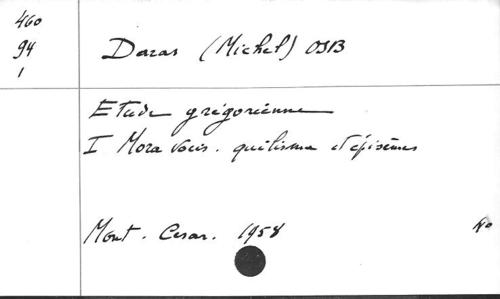 460
94
1
Daras (Michel) OSB
Etude grégorienne
I Mora vocis. quilisma et épisèmes
Mont. Cesar. 1958